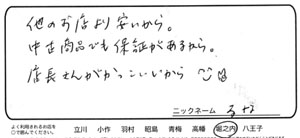 他のお店より安いから。
中古商品でも保証があるから。
店長さんがかっこいいから
ニックネーム るな
よく利用されるお店を
○で囲んでください。
立川 小作 羽村 昭島 青梅 高幡 堀之内 八王子